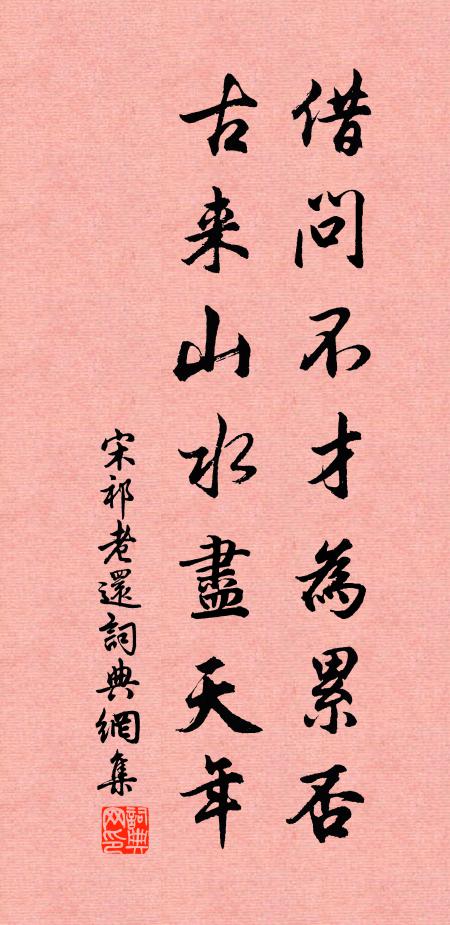 借問不才為累否
古来山水盡天年
宋祁老還詞典網集
詞典网印